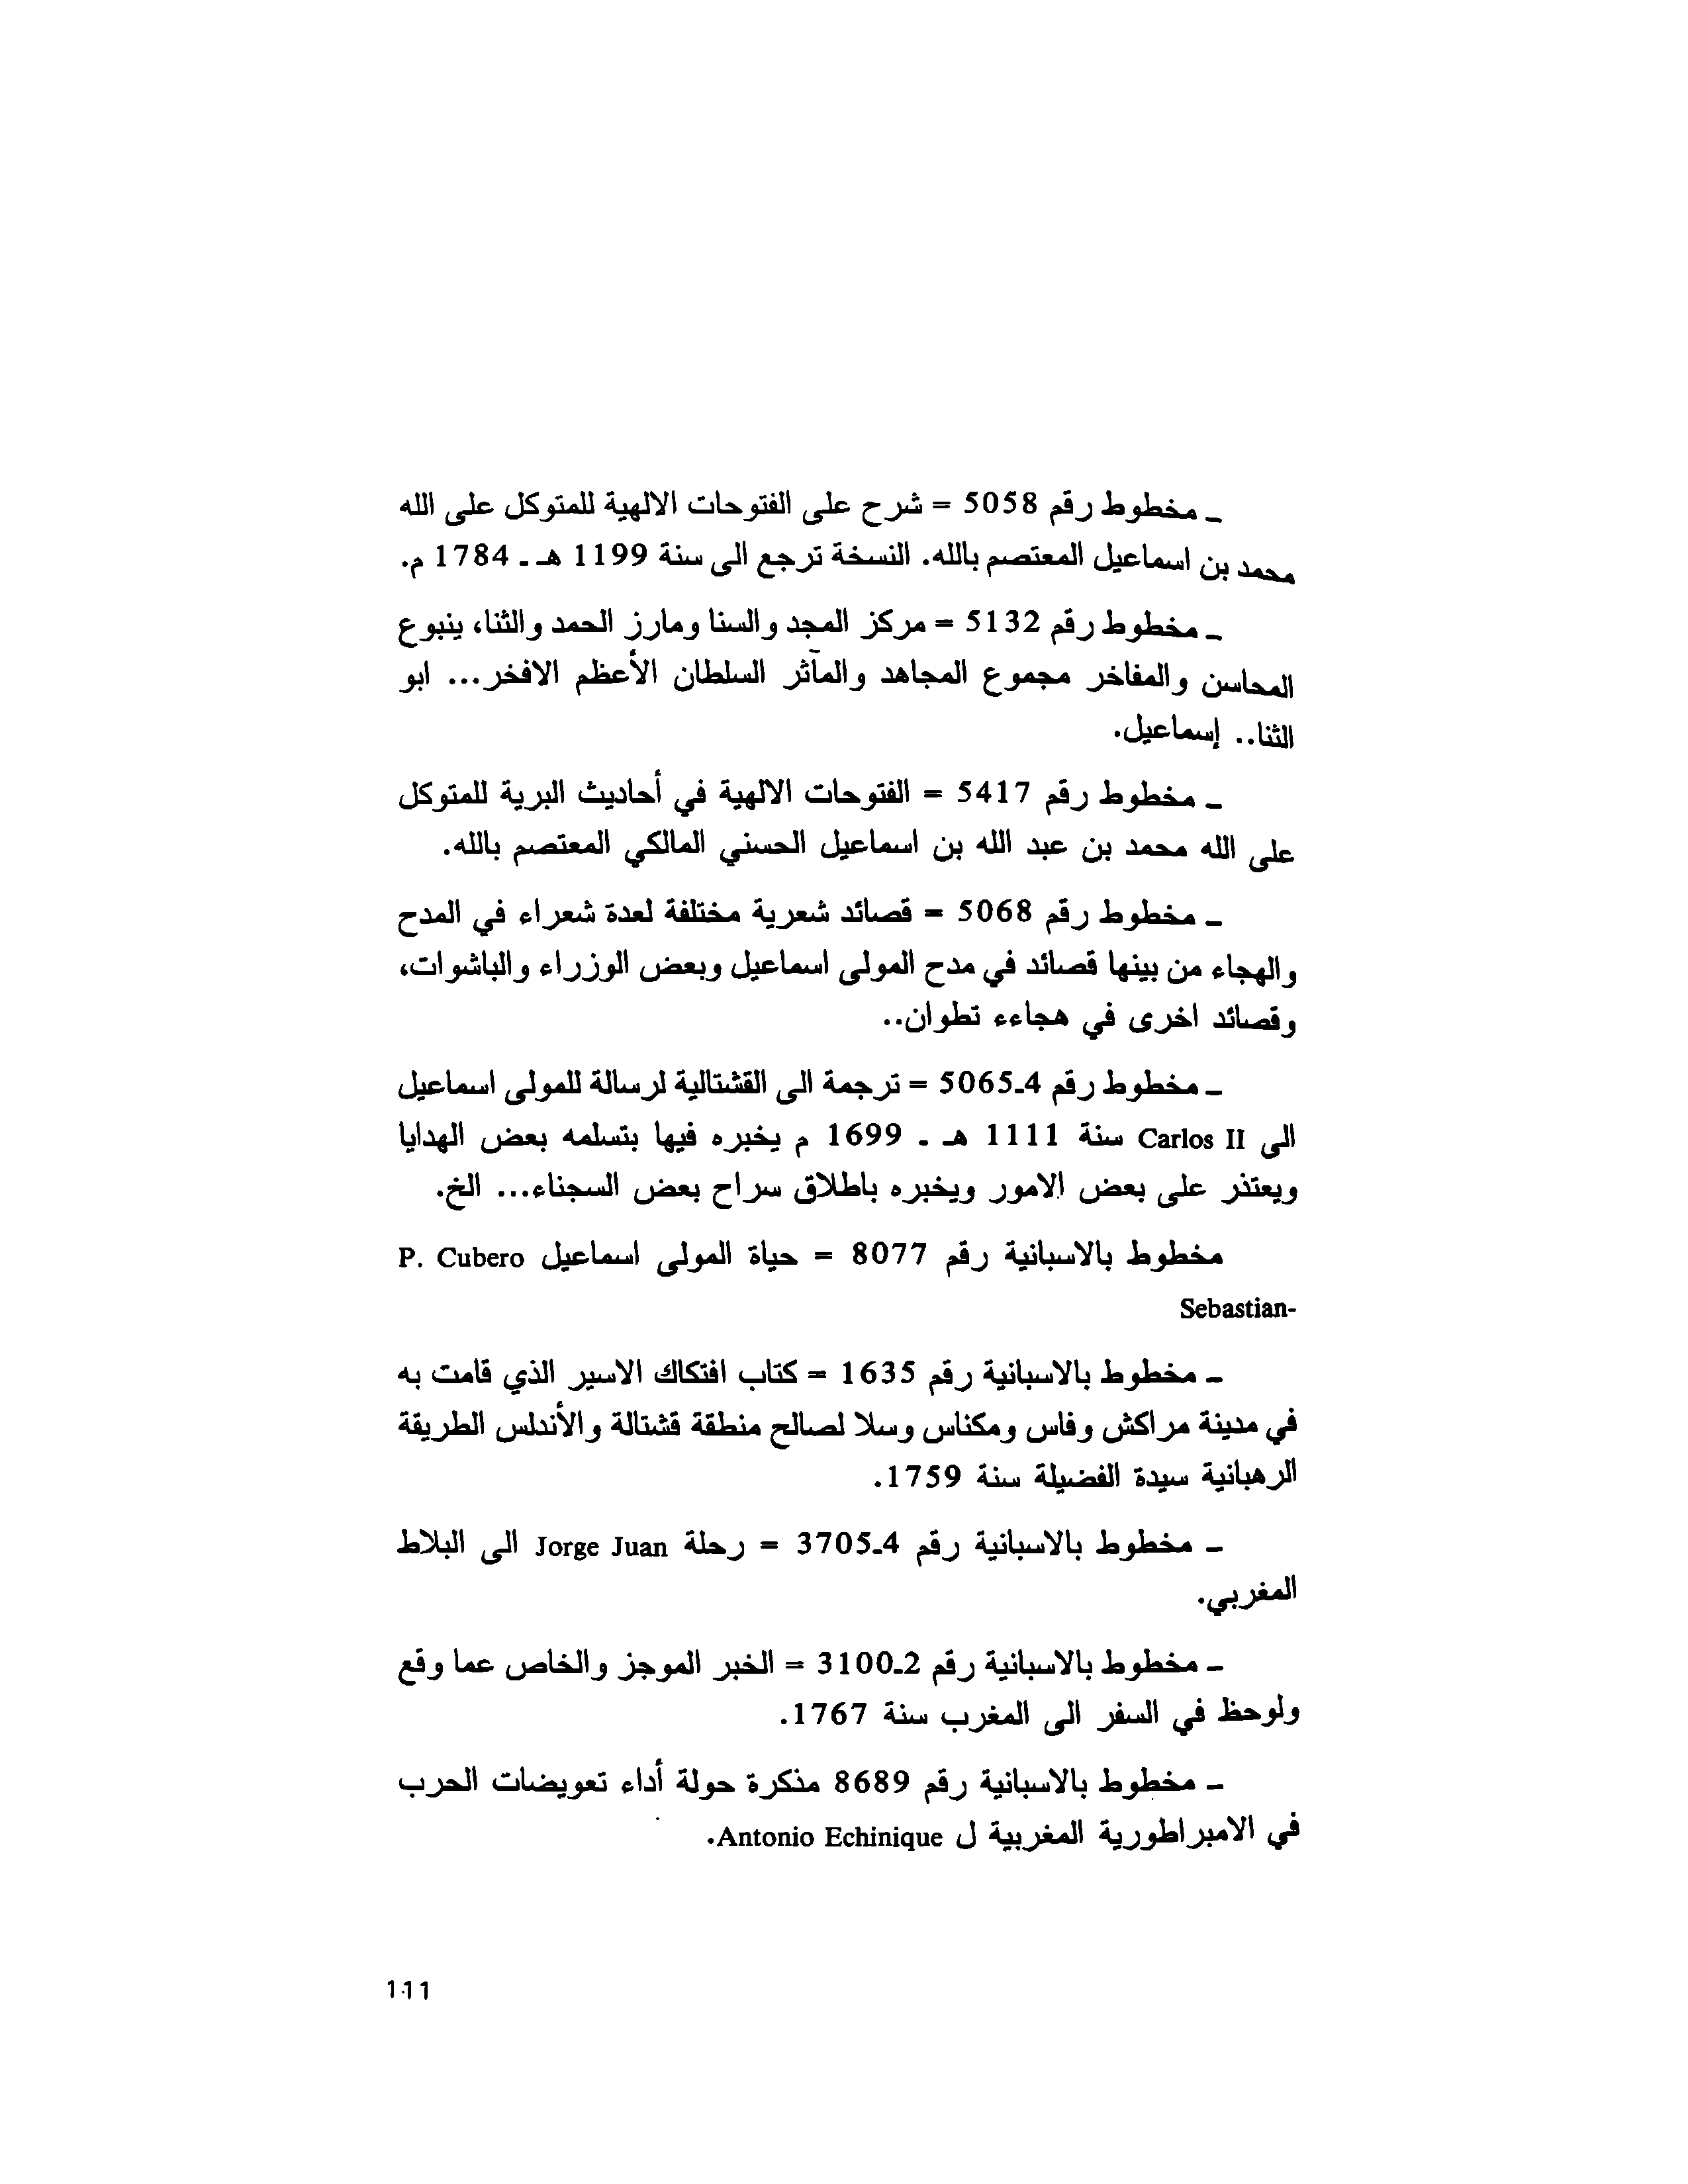 ـ مخطوط رقم 5058 = شرح على الفتوحات الالهية للمتوكل على الله
محمد بن اسماعيل المعتصم بالله. النسخة ترجع الى سنة 1199 هـ ـ 1784 م.
ـ مخطوط رقم 5132 = مركز المجد والسنا ومارز الحمد والثنا، ينبوع
المحاسن والمفاخر مجموع المجاهد والمآثر السلطان الأعظم الافخر... ابو
الثنا.. إسماعيل.
ـ مخطوط رقم 5417 = الفتوحات الالهية في أحاديث البرية للمتوكل
على الله محمد بن عبد الله بن اسماعيل الحسني المالكي المعتصم بالله.
ـ مخطوط رقم 5068 = قصائد شعرية مختلفة لعدة شعراء في المدح
والهجاء من بينها قصائد في مدح المولى اسماعيل وبعض الوزراء والباشوات،
وقصائد اخرى في هجاءء تطوان..
ـ مخطوط رقم 4ـ5065 = ترجمة الى القشتالية لرسالة للمولى اسماعيل
الى Carlos II سنة 1111 هـ ـ 1699 م يخبره فيها بتسلمه بعض الهدايا
ويعتذر على بعض الامور ويخبره باطلاق سراح بعض السجناء... الخ.
مخطوط بالاسبانية رقم 8077 = حياة المولى اسماعيل P. Cubero
Sebastian-
ـ مخطوط بالاسبانية رقم 1635 = كتاب افتكاك الاسير الذي قامت به
في مدينة مراكش وفاس ومكناس وسلا لصالح منطقة قشتالة والأندلس الطريقة
الرهبانية سيدة الفضيلة سنة 1759.
ـ مخطوط بالاسبانية رقم 4ـ3705 = رحلة Jorge Juan الى البلاط
المغربي.
ـ مخطوط بالاسبانية رقم 2ـ3100 = الخبر الموجز والخاص عما وقع
ولوحظ في السفر الى المغرب سنة 1767.
ـ مخطوط بالاسبانية رقم 8689 مذكرة حولة أداء تعويضات الحرب
في الامبراطورية المغربية ل Antonio Echinique.
111